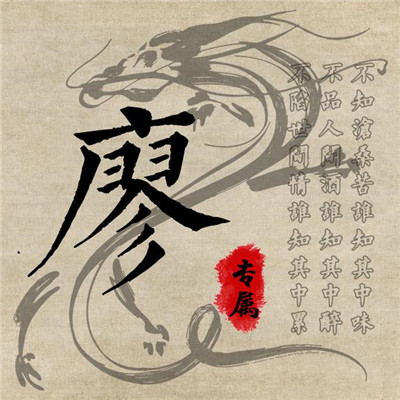 廖
专属
不知滄桑苦誰知其中味
不品人間酒誰知其中醉
不陷世間情誰知其中累